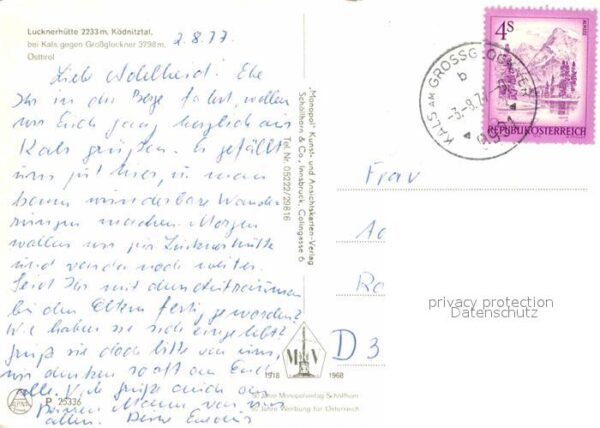 Lucknerhütte 2233 m, Ködnitztal,
bei Kals gegen Großglockner 3798 m,
Osttirol
2.8.77
Lieb Adelheid! Ehe
Ihr in die Berge fahrt, wollen
wir Euch ganz herzlich aus
Kals grüßen. Es gefällt
uns gut hier, man
kann wunderbare Wande-
rungen machen. Morgen
wollen wir zur Lucknerhütte
und von da noch weiter.
Seid Ihr mit dem
bei den Eltern fertig geworden?
Wie haben sie sich eingelebt?
Grüß sie doch bitte von uns,
wir denken so oft an Euch
alle. Viele Grüße auch an
Deinen Mann von uns
allen. Deine
P 25336
"Monopol" Kunst- und Ansichtskarten-Verlag
Schöllhorn & Co., Innsbruck, Colingasse 6
Tel. Nr. 05222/29816
1918 1968
50 Jahre Monopolverlag Schöllhorn
50 Jahre Werbung für Österreich
4S
REPUBLIK ÖSTERREICH
KALS AM GROSSGLOCKNER
b
9981
Frau
Ro
D 3
privacy protection
Datenschutz